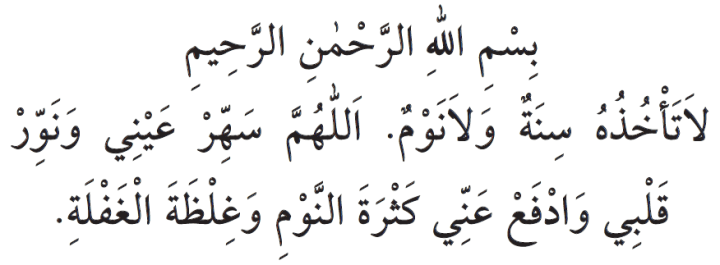 بِسْمِ اللهِ الرَّحْمٰنِ الرَّحِيمِ
لَاتَأْخُذُهُ سِنَةٌ وَلَانَوْمٌ. اَللّٰهُمَّ سَهِّرْ عَيْنِي وَنَوِّرْ
قَلْبِي وَادْفَعْ عَنِّي كَثْرَةَ النَّوْمِ وَغِلْظَةَ الْغَفْلَةِ.